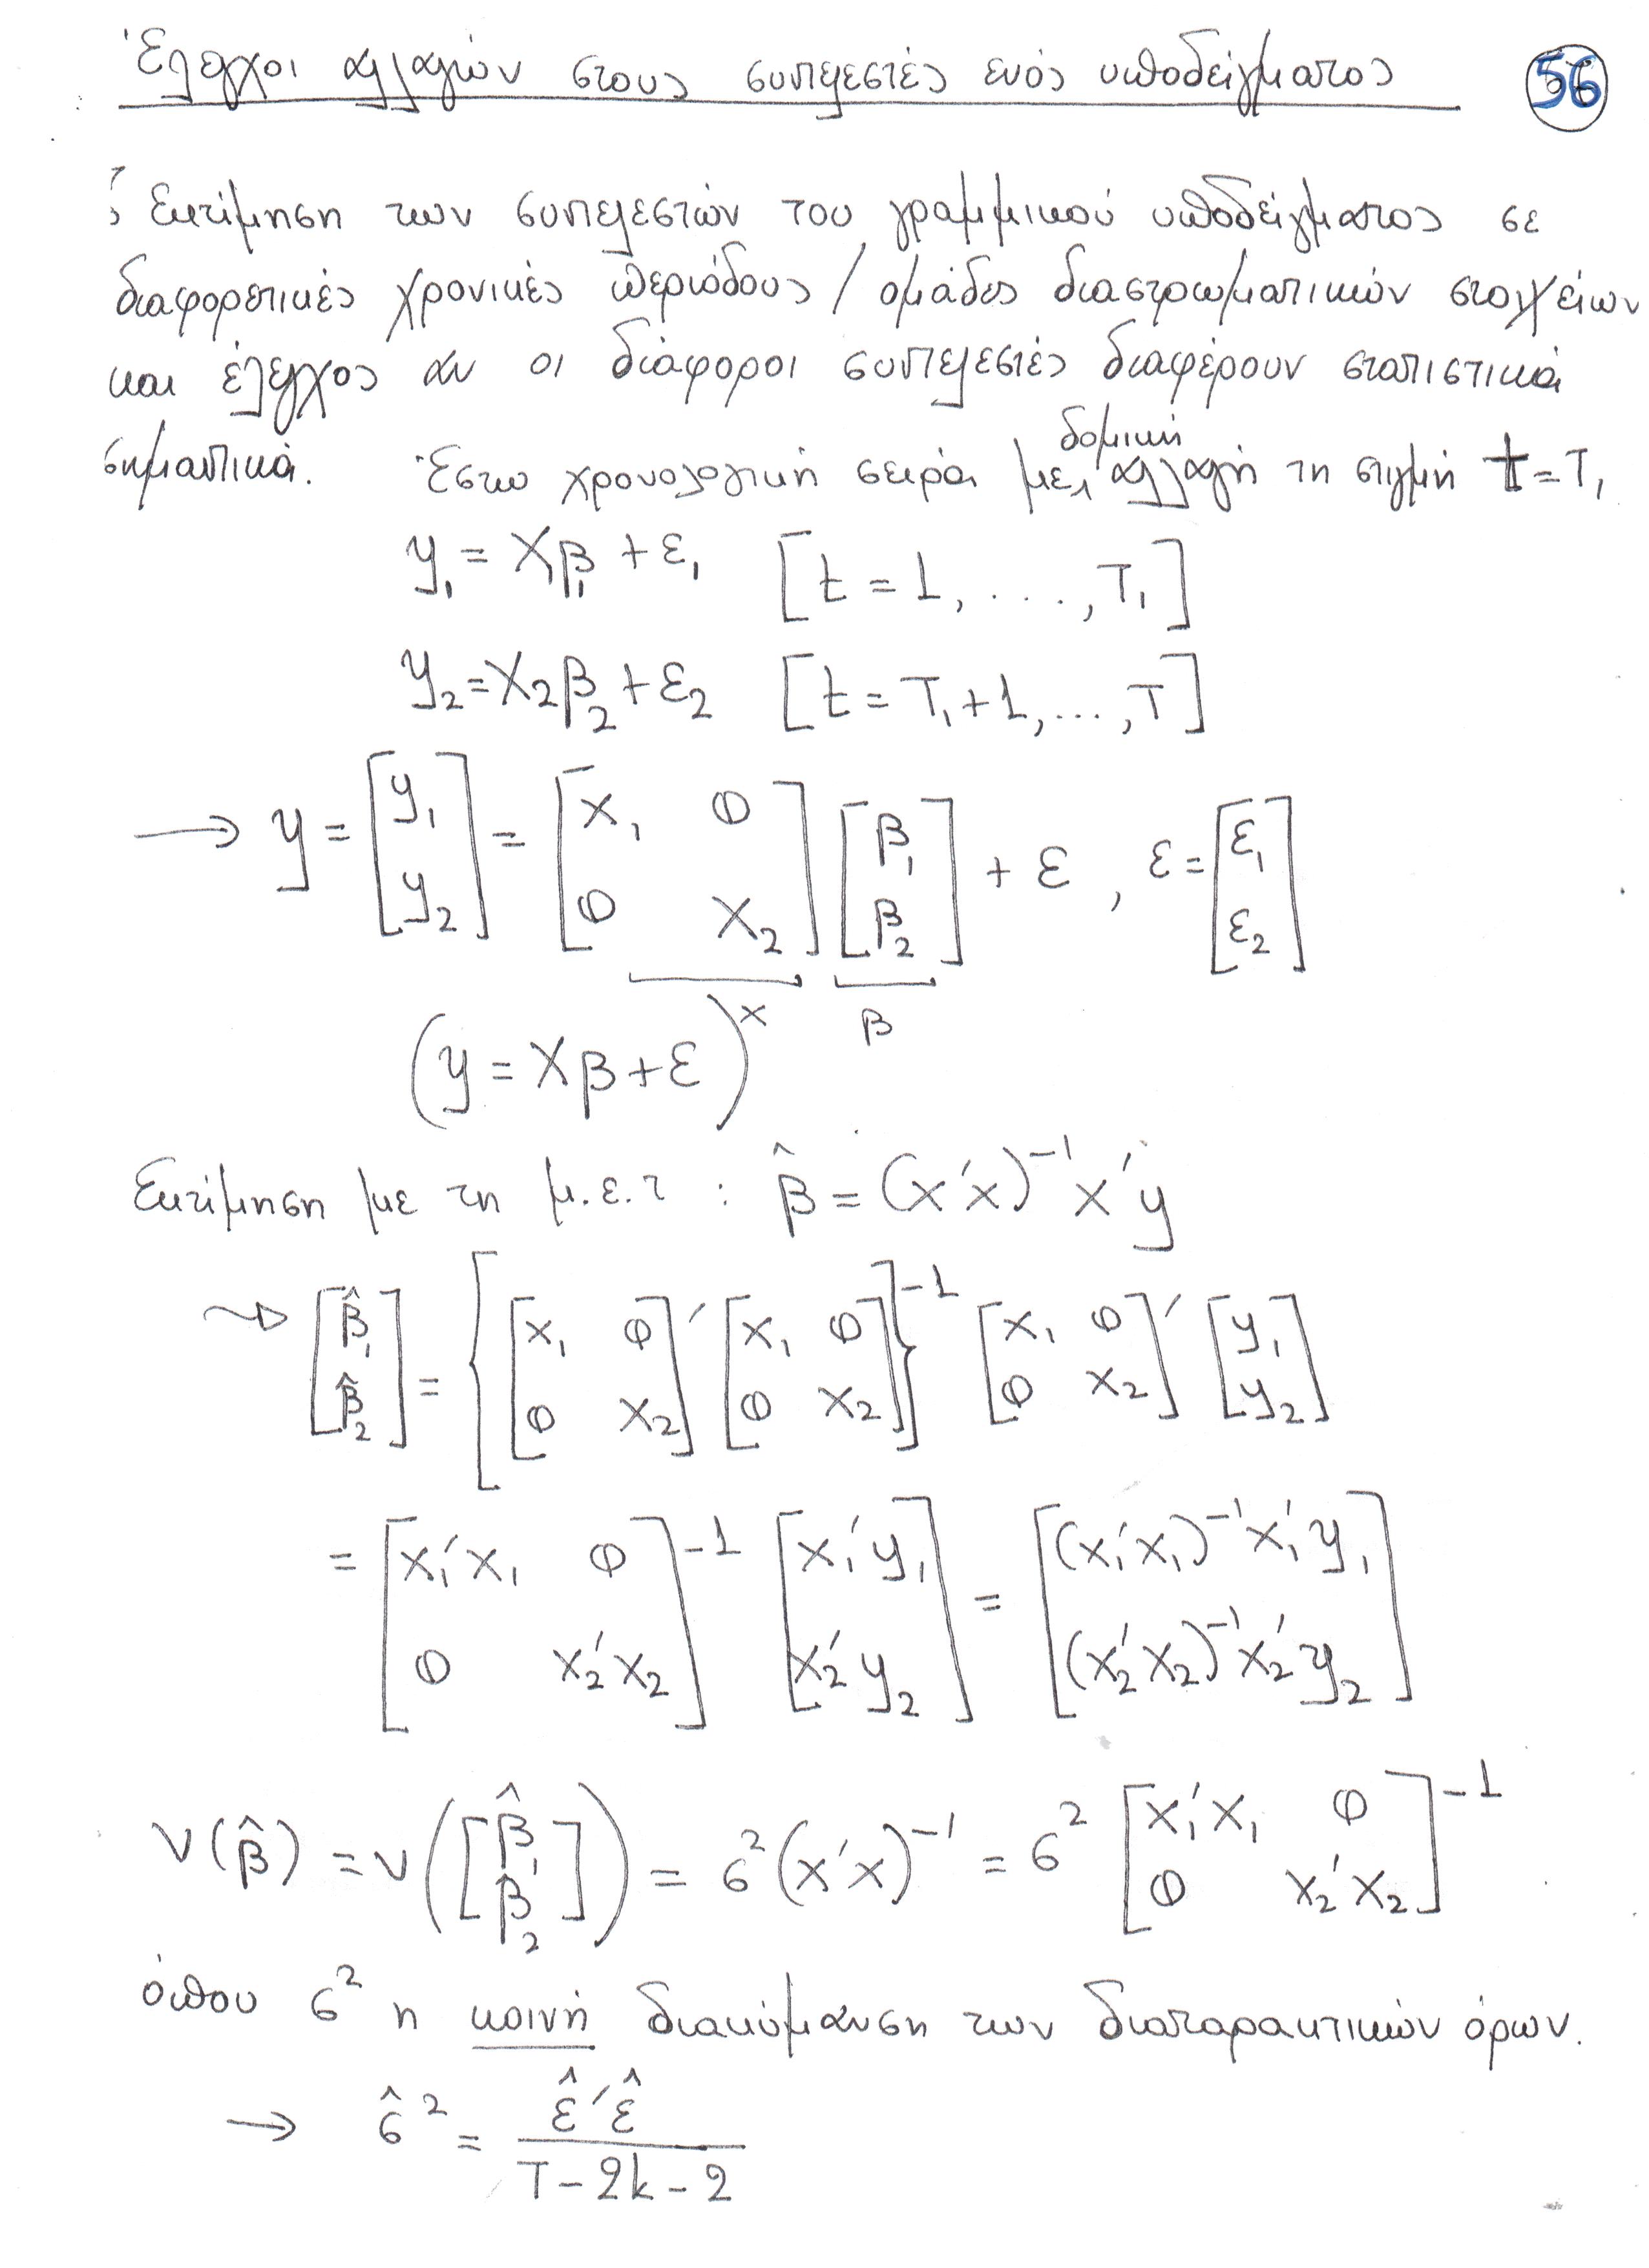 Έλεγχοι αλλαγών στους συντελεστές ενός υποδείγματος
56
: Εκτίμηση των συντελεστών του γραμμικού υποδείγματος σε
διαφορετικές χρονικές περιόδους / ομάδες διαστρωματικών στοιχείων
και έλεγχος αν οι διάφοροι συντελεστές διαφέρουν στατιστικά
σημαντικά. Έστω χρονολογική σειρά με δομική αλλαγή τη στιγμή t = T₁
y₁ = X₁β₁ + ε₁ [t = 1, ...., T₁]
y₂ = X₂β₂ + ε₂ [t = T₁+1, ..., T]
→ y = [y₁ ; y₂] = [X₁ 0 ; 0 X₂] [β₁ ; β₂] + ε , ε = [ε₁ ; ε₂]
X β
(y = Xβ + ε)
Εκτίμηση με τη μ.ε.τ : β̂ = (X′X)⁻¹X′y
→ [β̂₁ ; β̂₂] = {[X₁ 0 ; 0 X₂]′ [X₁ 0 ; 0 X₂]}⁻¹ [X₁ 0 ; 0 X₂]′ [y₁ ; y₂]
= [X₁′X₁ 0 ; 0 X₂′X₂]⁻¹ [X₁′y₁ ; X₂′y₂] = [(X₁′X₁)⁻¹X₁′y₁ ; (X₂′X₂)⁻¹X₂′y₂]
V(β̂) = V([β̂₁ ; β̂₂]) = σ²(X′X)⁻¹ = σ² [X₁′X₁ 0 ; 0 X₂′X₂]⁻¹
όπου σ² η κοινή διακύμανση των διαταρακτικών όρων.
→ σ̂² = ε̂′ε̂ / (T - 2k - 2)